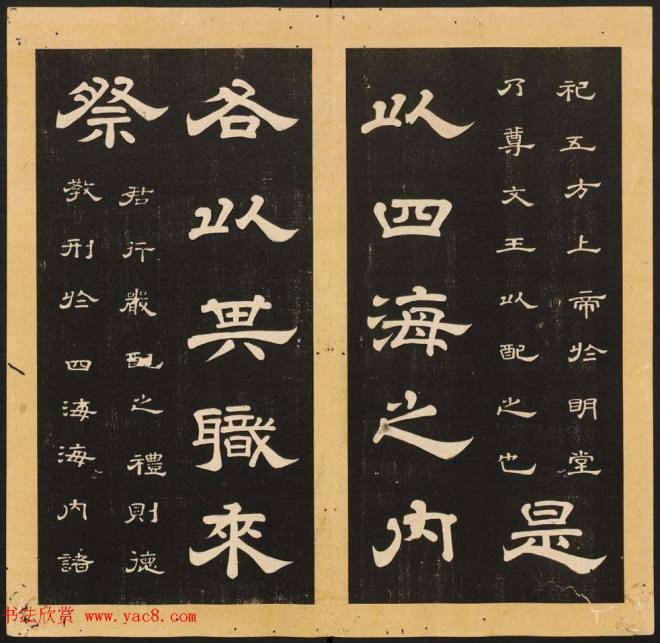 祀五方上帝於明堂
乃尊文王以配之也
是
以四海之内
各以其職來
祭
君行嚴配之禮則德
教刑於四海海内諸
书法欣赏 www.yac8.com